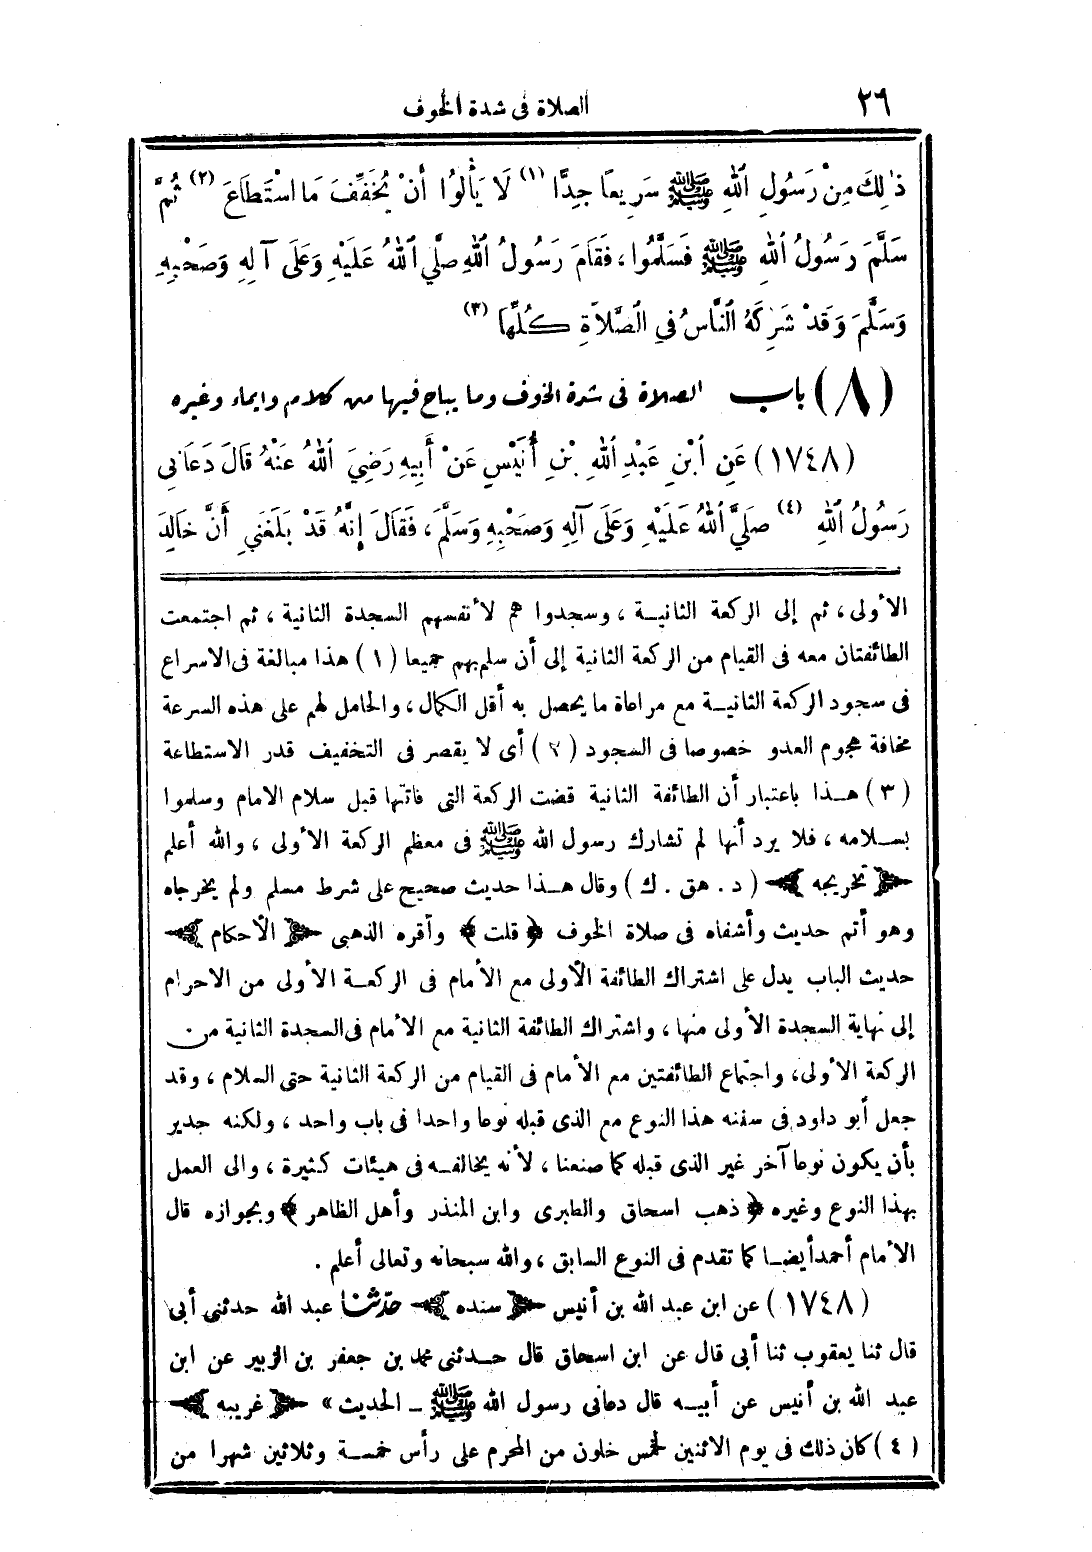 ٢٦ الصلاة فى شدة الخوف
ذٰلِكَ مِنْ رَسُولِ اللهِ ﷺ سَرِيعًا جِدًّا (١) لَا يَأْلُوا أَنْ يُخَفِّفَ مَا اسْتَطَاعَ (٢) ثُمَّ
سَلَّمَ رَسُولُ اللهِ ﷺ فَسَلَّمُوا، فَقَامَ رَسُولُ اللهِ صلَّي اللهُ عَلَيْهِ وَعَلَى آلِهِ وَصَحْبِهِ
وَسَلَّمَ وَقَدْ شَرِكَهُ النَّاسُ فِي الصَّلاَةِ كُلِّهَا (٣)
(٨) باب الصلاة فى شدة الخوف وما يباح فيها من كلام وايماء وغيره
(١٧٤٨) عَنِ ابْنِ عَبْدِ اللهِ بْنِ أُنَيْسٍ عَنْ أَبِيهِ رَضِيَ اللهُ عَنْهُ قَالَ دَعَانِي
رَسُولُ اللهِ (٤) صَلَّي اللهُ عَلَيْهِ وَعَلَى آلِهِ وَصَحْبِهِ وَسَلَّمَ، فَقَالَ إِنَّهُ قَدْ بَلَغَنِي أَنَّ خَالِدَ
الأولى، ثم إلى الركعة الثانية، وسجدوا هم لأنفسهم السجدة الثانية، ثم اجتمعت
الطائفتان معه فى القيام من الركعة الثانية إلى أن سلم بهم جميعا (١) هذا مبالغة فى الاسراع
فى سجود الركعة الثانية مع مراعاة ما يحصل به أقل الكمال، والحامل لهم على هذه السرعة
مخافة هجوم العدو خصوصا فى السجود (٢) أى لا يقصر فى التخفيف قدر الاستطاعة
(٣) هذا باعتبار أن الطائفة الثانية قضت الركعة التى فاتتها قبل سلام الامام وسلموا
بسلامه، فلا يرد أنها لم تشارك رسول الله ﷺ فى معظم الركعة الأولى، والله أعلم
﴿تخريجه﴾ (د. هق. ك) وقال هذا حديث صحيح على شرط مسلم ولم يخرجاه
وهو أتم حديث وأشفاه فى صلاة الخوف ﴿قلت﴾ وأقره الذهبى ﴿الأحكام﴾
حديث الباب يدل على اشتراك الطائفة الأولى مع الأمام فى الركعة الأولى من الاحرام
إلى نهاية السجدة الأولى منها، واشتراك الطائفة الثانية مع الأمام فى السجدة الثانية من
الركعة الأولى، واجتماع الطائفتين مع الأمام فى القيام من الركعة الثانية حتى السلام، وقد
جعل أبو داود فى سننه هذا النوع مع الذى قبله نوعا واحدا فى باب واحد، ولكنه جدير
بأن يكون نوعا آخر غير الذى قبله كما صنعنا، لأنه يخالفه فى هيئات كثيرة، والى العمل
بهذا النوع وغيره ﴿ذهب اسحاق والطبرى وابن المنذر وأهل الظاهر﴾ وبجوازه قال
الأمام أحمد أيضا كما تقدم فى النوع السابق، والله سبحانه وتعالى أعلم.
(١٧٤٨) عن ابن عبد الله بن أنيس ﴿سنده﴾ حدثنا عبد الله حدثنى أبى
قال ثنا يعقوب ثنا أبى قال عن ابن اسحاق قال حدثنى محمد بن جعفر بن الزبير عن ابن
عبد الله بن أنيس عن أبيه قال دعانى رسول الله ﷺ ـ الحديث» ﴿غريبه﴾
(٤) كان ذلك فى يوم الاثنين لخمس خلون من المحرم على رأس خمسة وثلاثين شهرا من